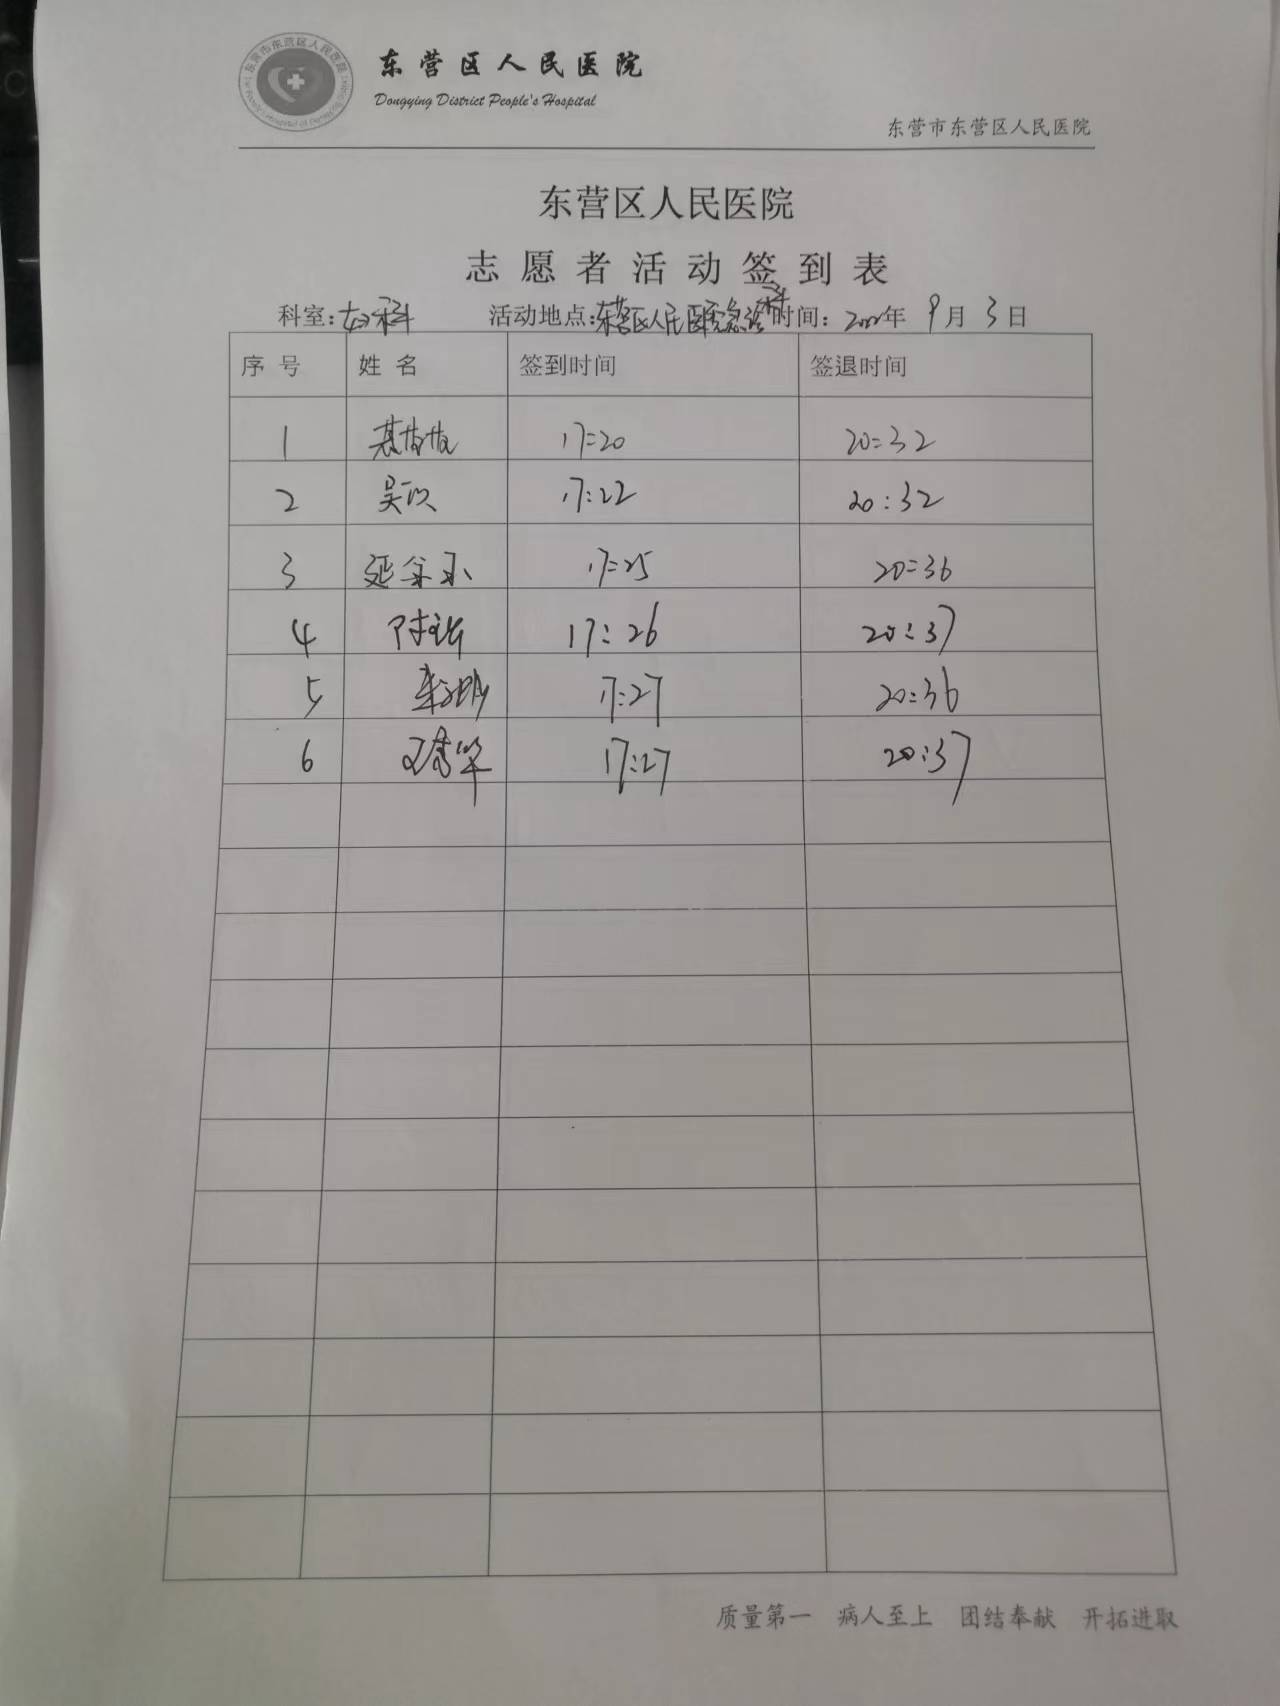 东营区人民医院
Dongying District People's Hospital
东营市东营区人民医院
东营区人民医院
志愿者活动签到表
科室：妇科 活动地点：东营区人民医院急诊科 时间： 年 9月 3日
序号 姓名 签到时间 签退时间
1 17:20 20:32
2 吴 17:22 20:32
3 延 17:25 20:36
4 17:26 20:37
5 17:27 20:36
6 王秀华 17:27 20:37
质量第一 病人至上 团结奉献 开拓进取